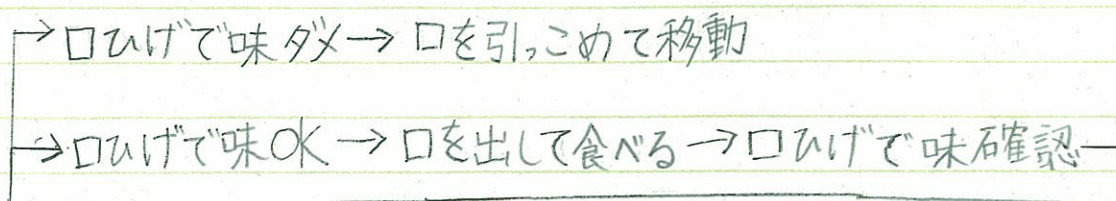 →口ひげで味ダメ→口を引っこめて移動
→口ひげで味OK→口を出して食べる→口ひげで味確認